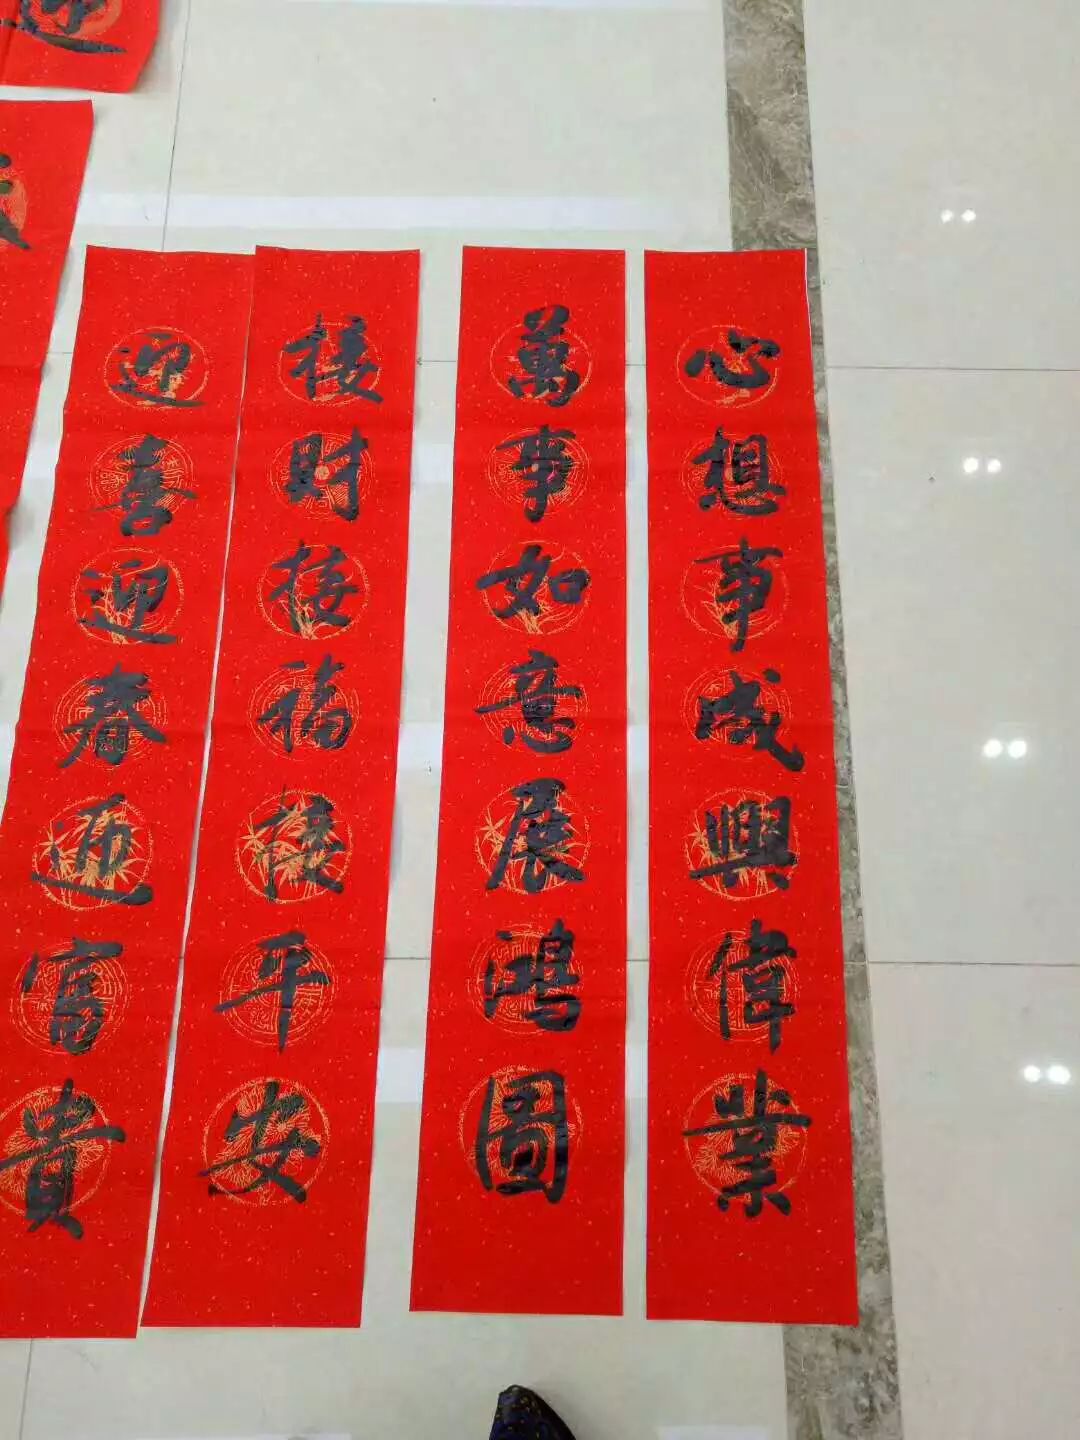 心想事成興偉業
萬事如意展鸿圖
接財接福接平安
迎喜迎春迎富貴
迎